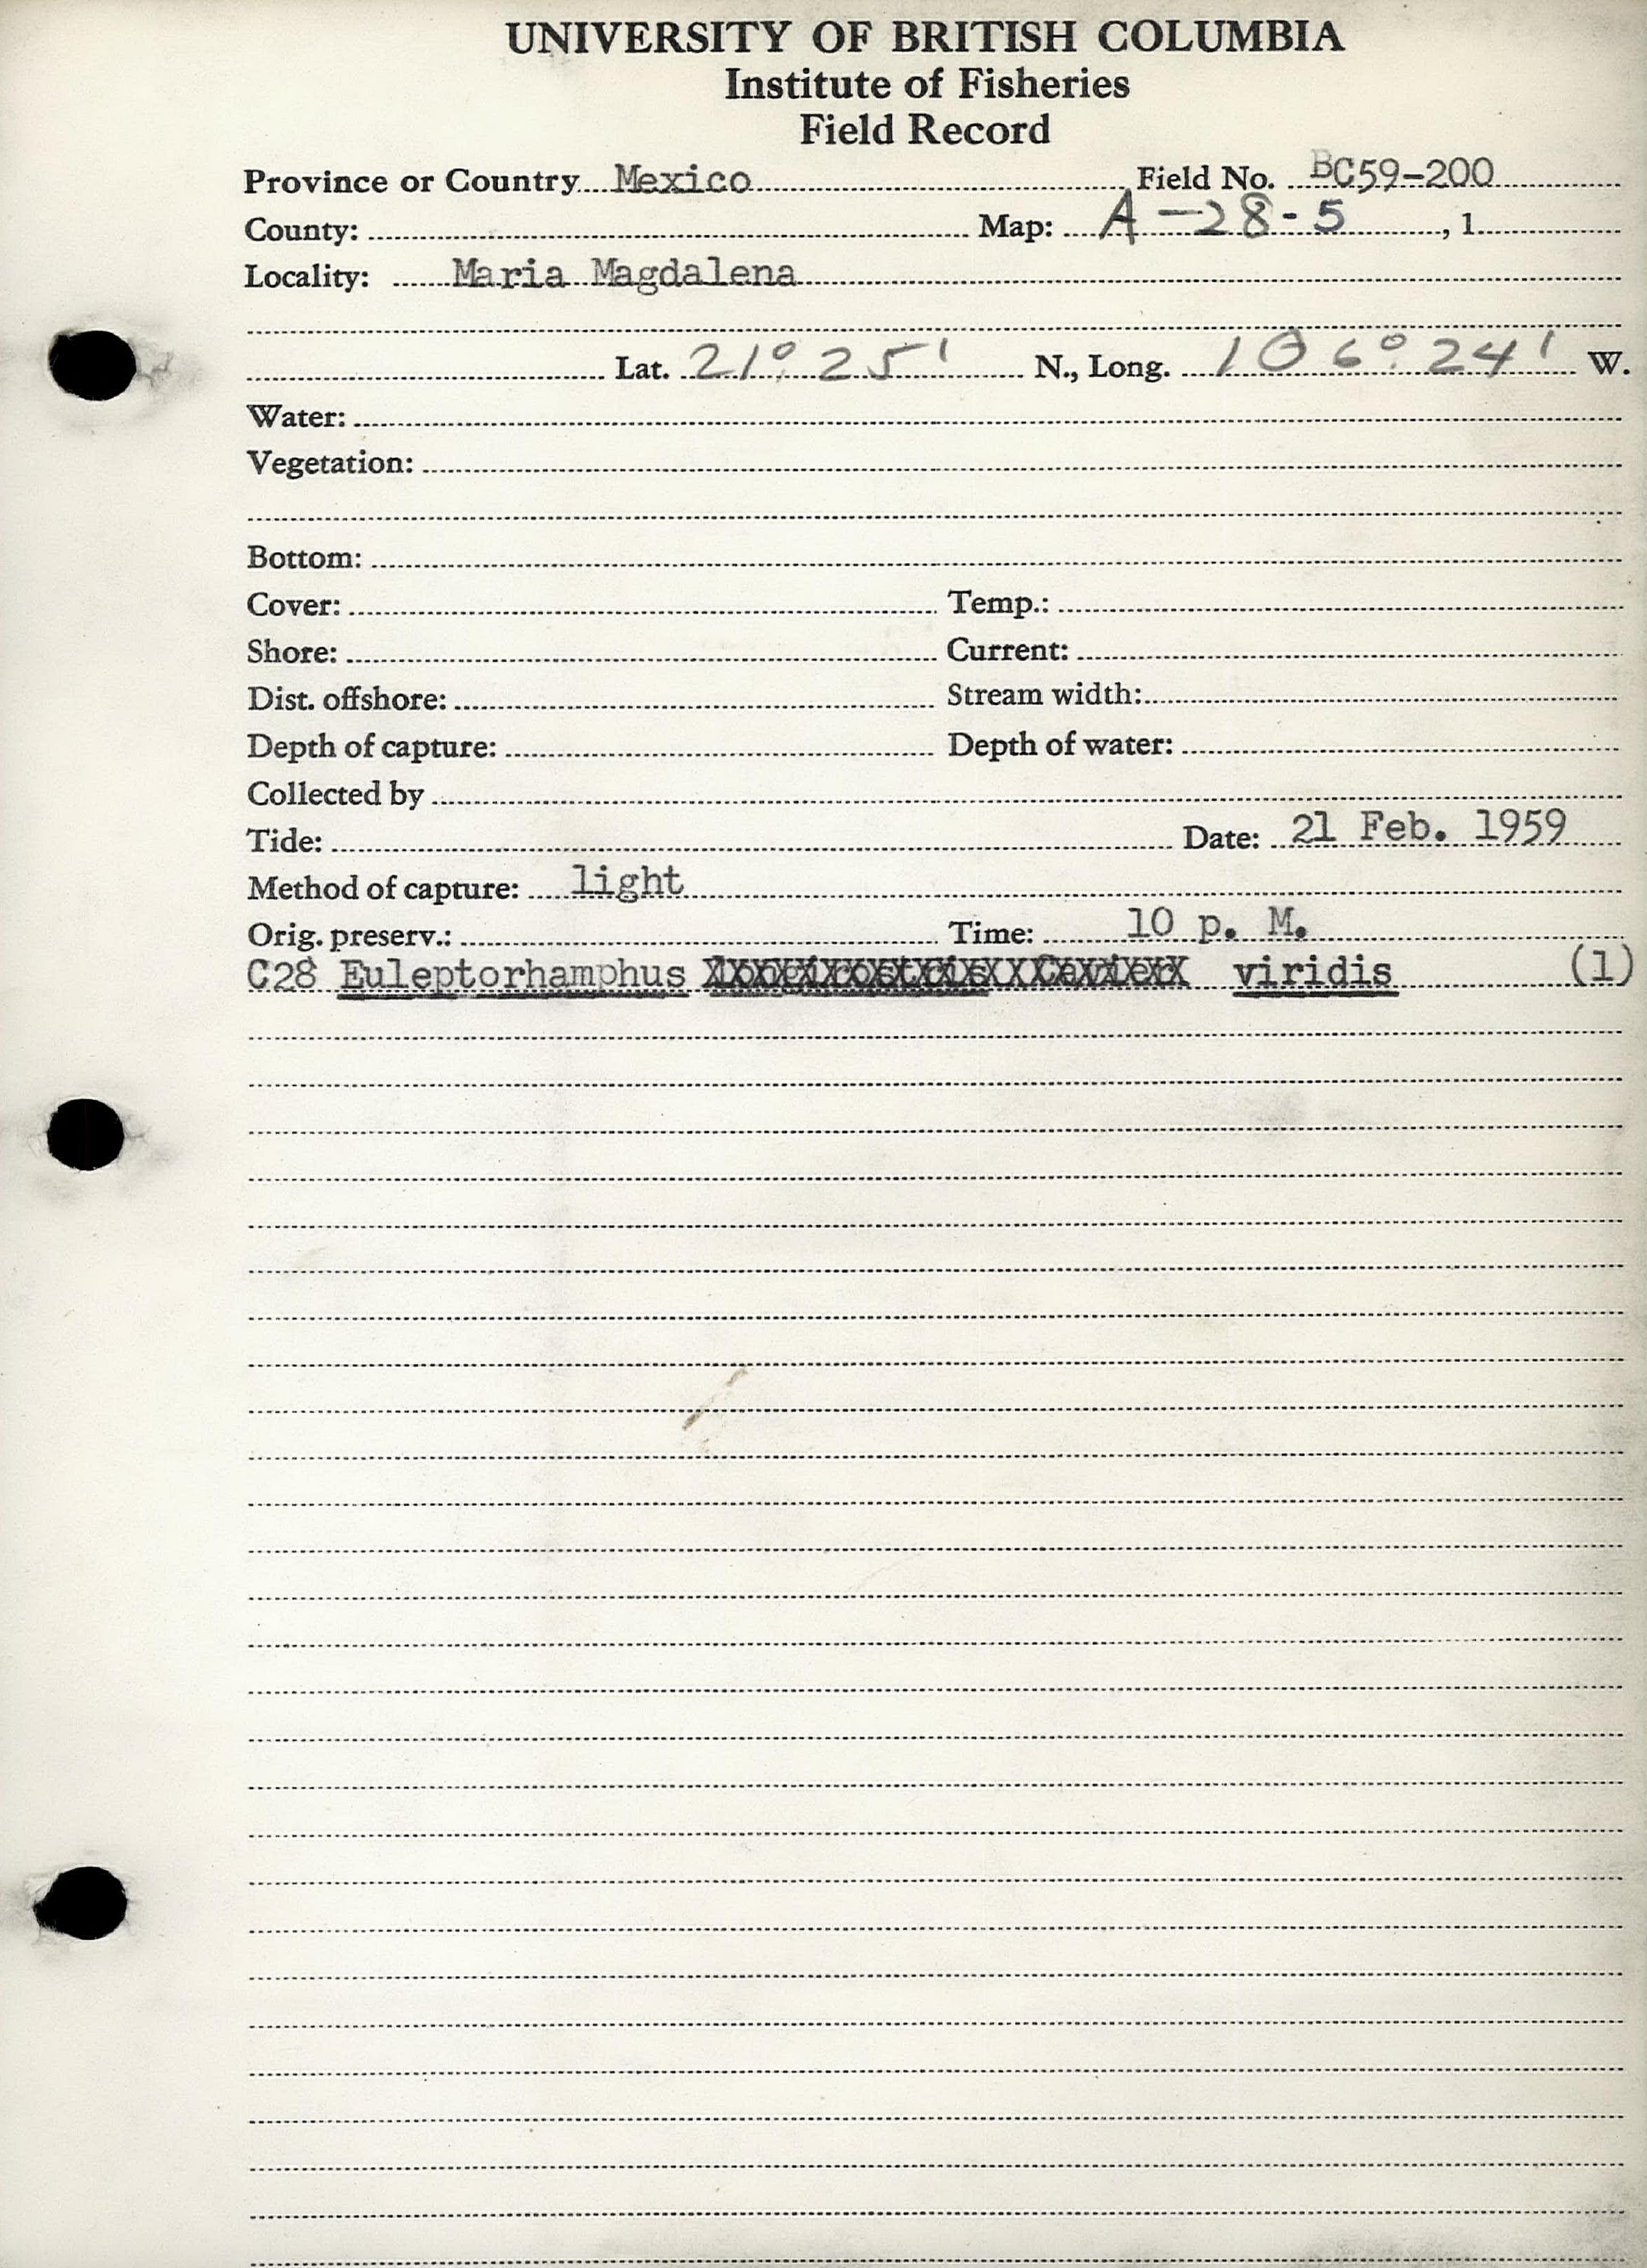 UNIVERSITY OF BRITISH COLUMBIA
Institute of Fisheries
Field Record
Province or Country Mexico Field No. BC59-200
County: Map: A-28-5, 1
Locality: Maria Magdalena
Lat. 21° 25' N., Long. 106° 24' W.
Water:
Vegetation:
Bottom:
Cover: Temp.:
Shore: Current:
Dist. offshore: Stream width:
Depth of capture: Depth of water:
Collected by
Tide: Date: 21 Feb. 1959
Method of capture: light
Orig. preserv.: Time: 10 p. M.
C28 Euleptorhamphus viridis (1)